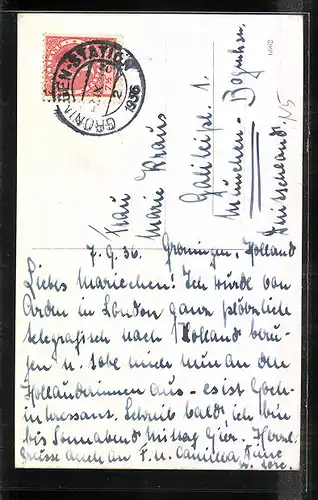 GRONINGEN-STATION
1936
Frau
Marie Kraus
Galileipl. 1.
München - Bogenhsn.
Deutschland
7.9.36. Groningen, Holland
Liebes Mariechen! Ich wurde von
Arden in London ganz plötzlich
telegrafisch nach Holland beru-
fen u. tobe mich nun an den
Holländerinnen aus - es ist hoch-
interessant. Schreib bald, ich bin
bis Sonnabend Mittag hier. Herzl.
Grüsse auch an F. u. Camilla